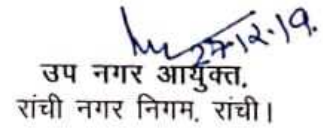 27-12-19.
उप नगर आयुक्त,
रांची नगर निगम, रांची।